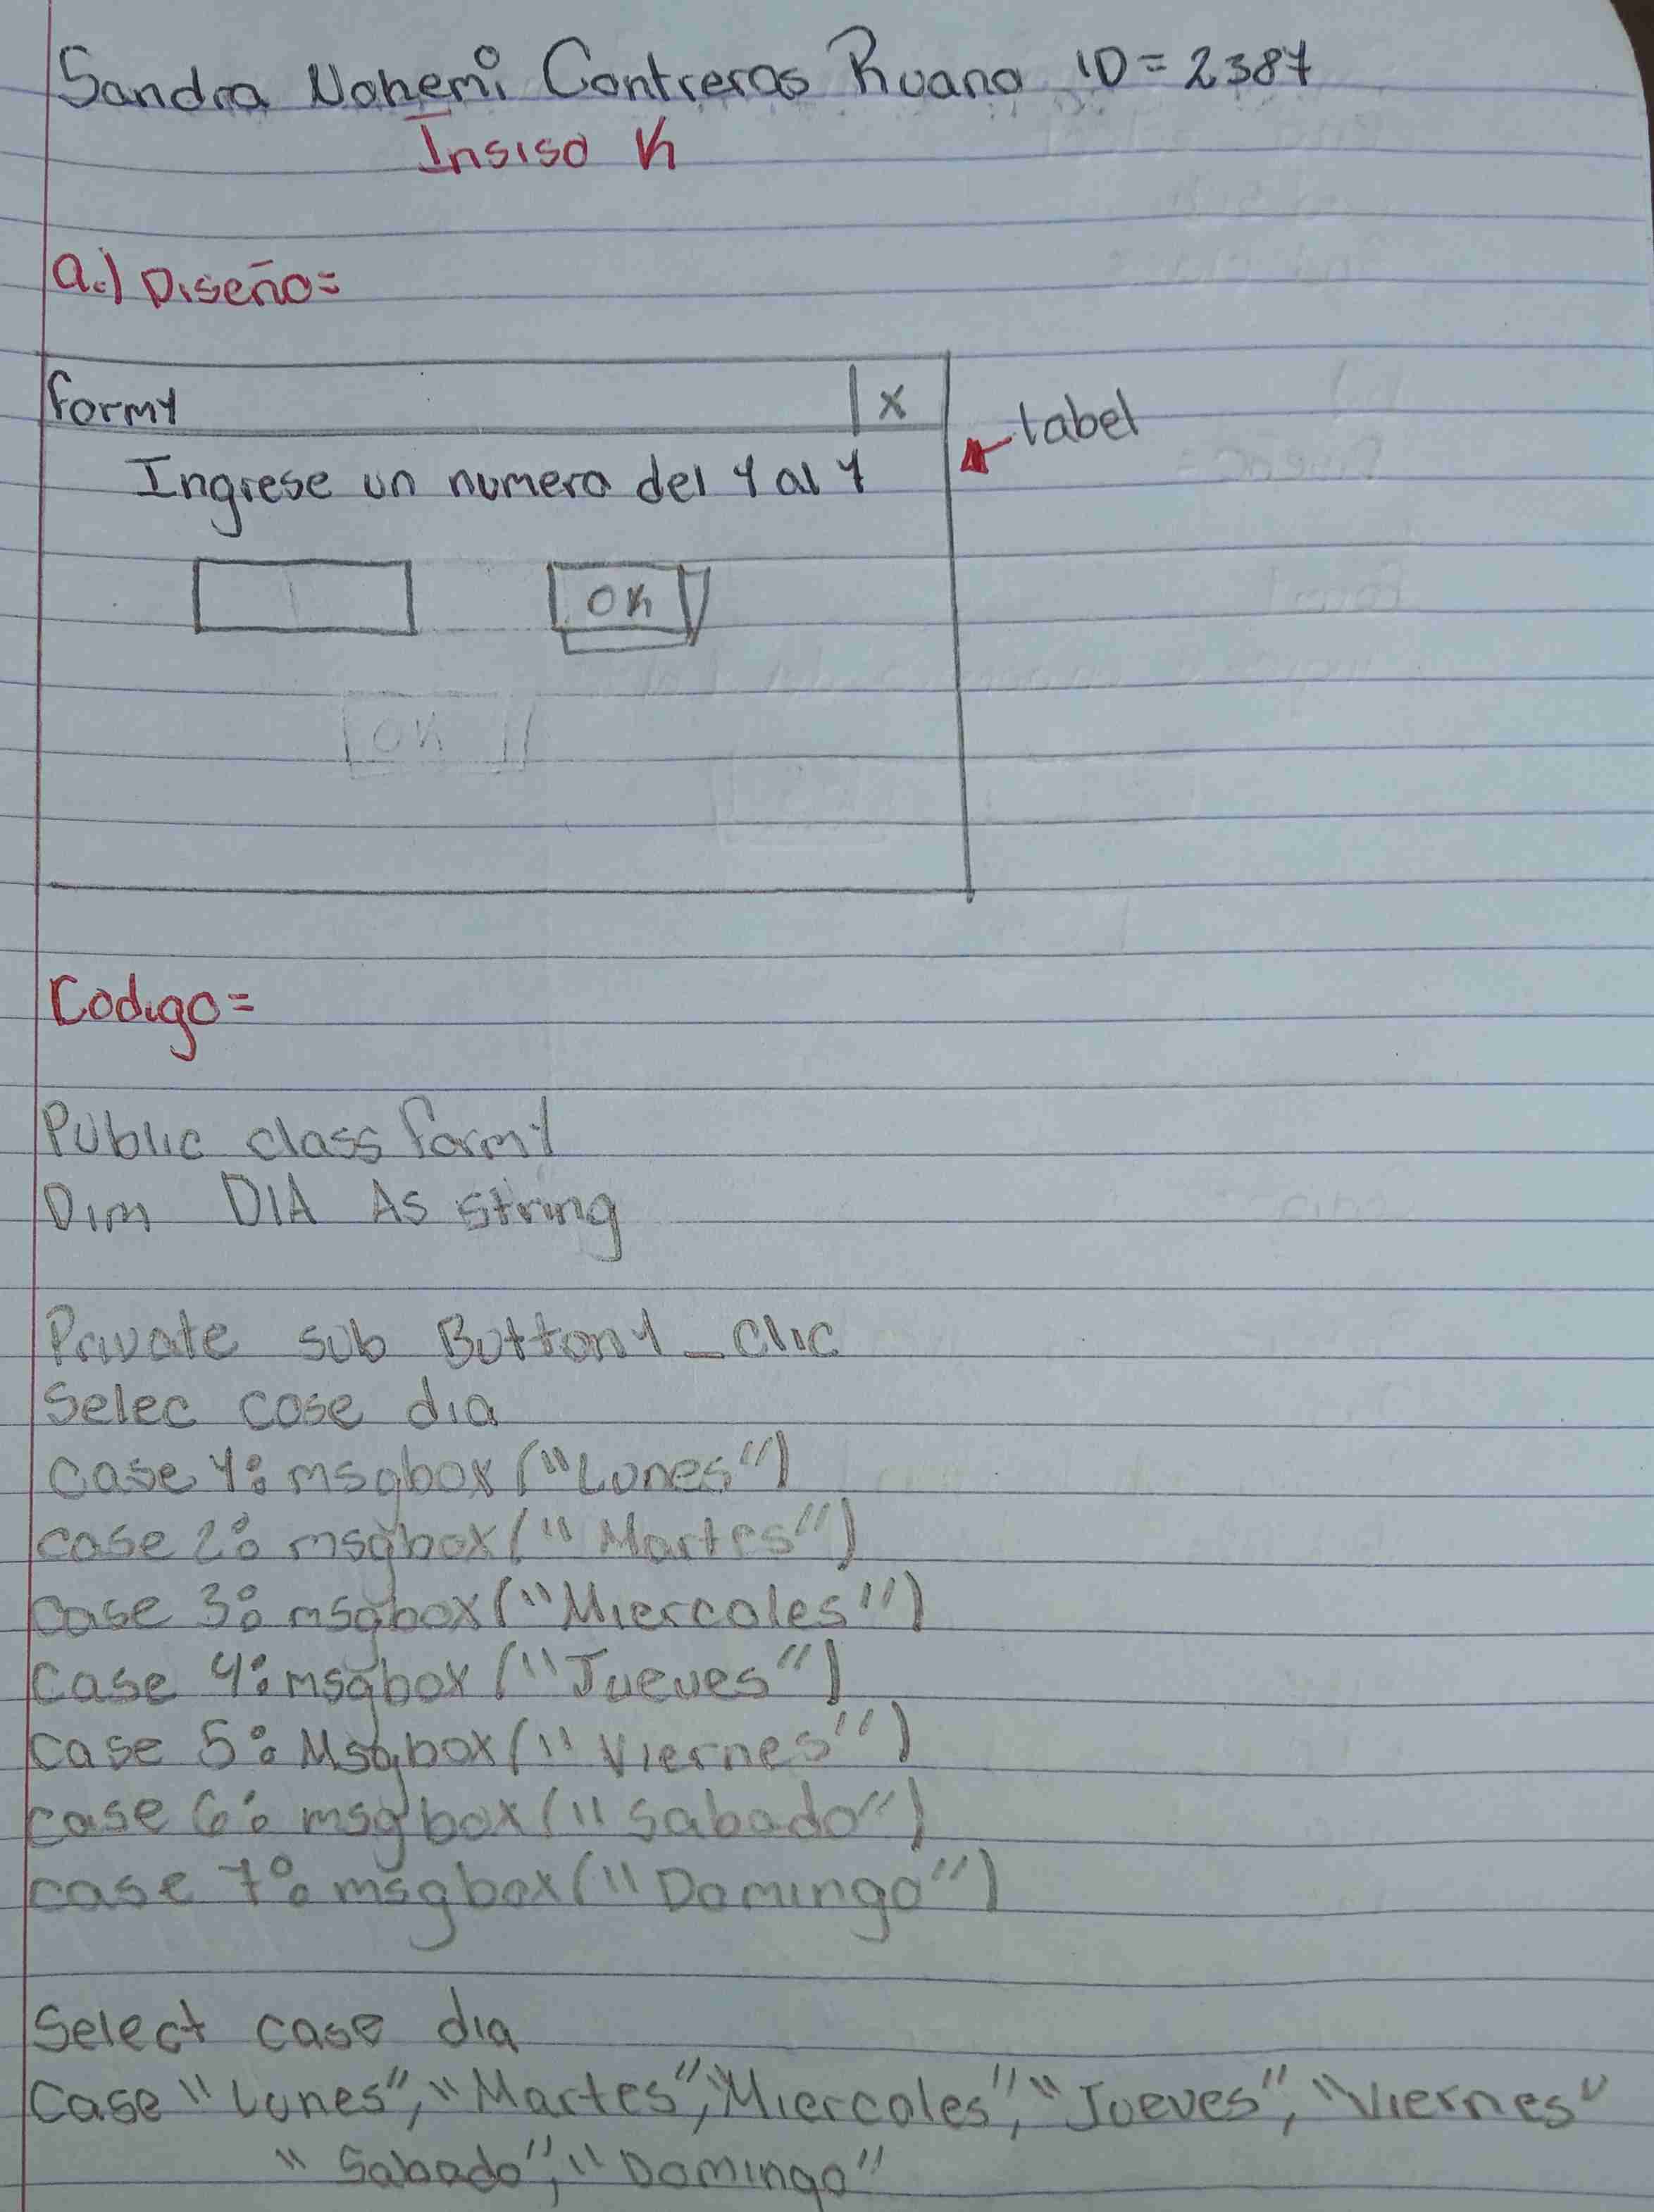 Sandra Nohemi Contreras Ruano ID=2387
Insiso K
a.) Diseño=
Form1 X
label
Ingrese un numero del 1 al 7
OK
OK
Codigo=
Public class form1
Dim DIA As string
Private sub Button1_Clic
Selec case dia
case 1: msgbox ("Lunes")
case 2: msgbox ("Martes")
case 3: msgbox ("Miercoles")
case 4: msgbox ("Jueves")
case 5: Msgbox ("Viernes")
case 6: msgbox ("Sabado")
case 7: msgbox ("Domingo")
Select case dia
Case "Lunes", "Martes", "Miercoles", "Jueves", "Viernes"
"Sabado", "Domingo"